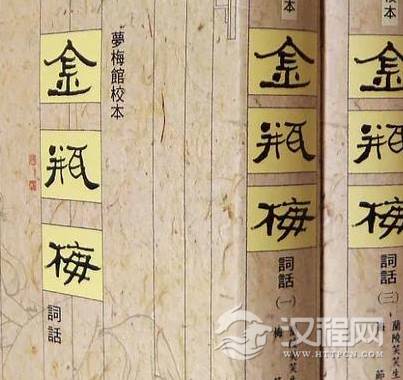 夢梅館校本
金瓶梅
詞話
本
金瓶梅
詞話
(一)
梅
校本
金瓶梅
詞話
(三)
蘭陵笑笑生
節
汉程网
WWW.HTTPCN.COM